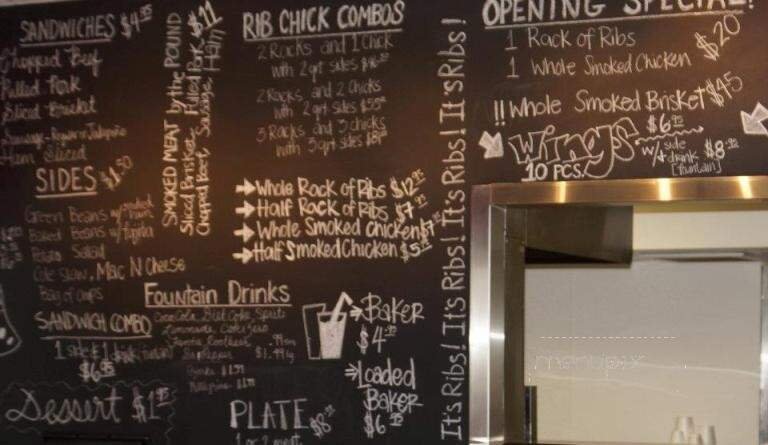 SANDWICHES $4.95
Chopped Beef
Pulled Pork
Sliced Brisket
Sausage
Ham Sliced
SIDES $1.50
Green Beans w/
Baked Beans w/
Potato Salad
Cole Slaw, Mac N Cheese
Bag of Chips
SANDWICH COMBO
1 side & 1 drink
$6.95
Dessert $1.95
SMOKED MEAT by the POUND $11
Sliced Brisket, Pulled Pork
Chopped Beef, Sausage, Ham
RIB CHICK COMBOS
2 Racks and 1 Chick
with 2 qrt sides
2 Racks and 2 Chicks
with 2 qrt sides
3 Racks and 3 chicks
with 3 qrt sides
Whole Rack of Ribs $12.95
Half Rack of Ribs $7.95
Whole Smoked Chicken $7.95
Half Smoked Chicken $5
Fountain Drinks
Coca Cola, Diet Coke, Sprite
Lemonade, Coke Zero
Baker
$4.95
Loaded
Baker
$6.95
PLATE $8
1 or 2 meat
It's Ribs! It's Ribs! It's Ribs! It's Ribs! It's Ribs!
OPENING SPECIAL!
1 Rack of Ribs
1 Whole Smoked Chicken
$20
!! Whole Smoked Brisket $45
wings $6.95
10 PCS.
w/ side
+ drink $8
[fountain]
menupix